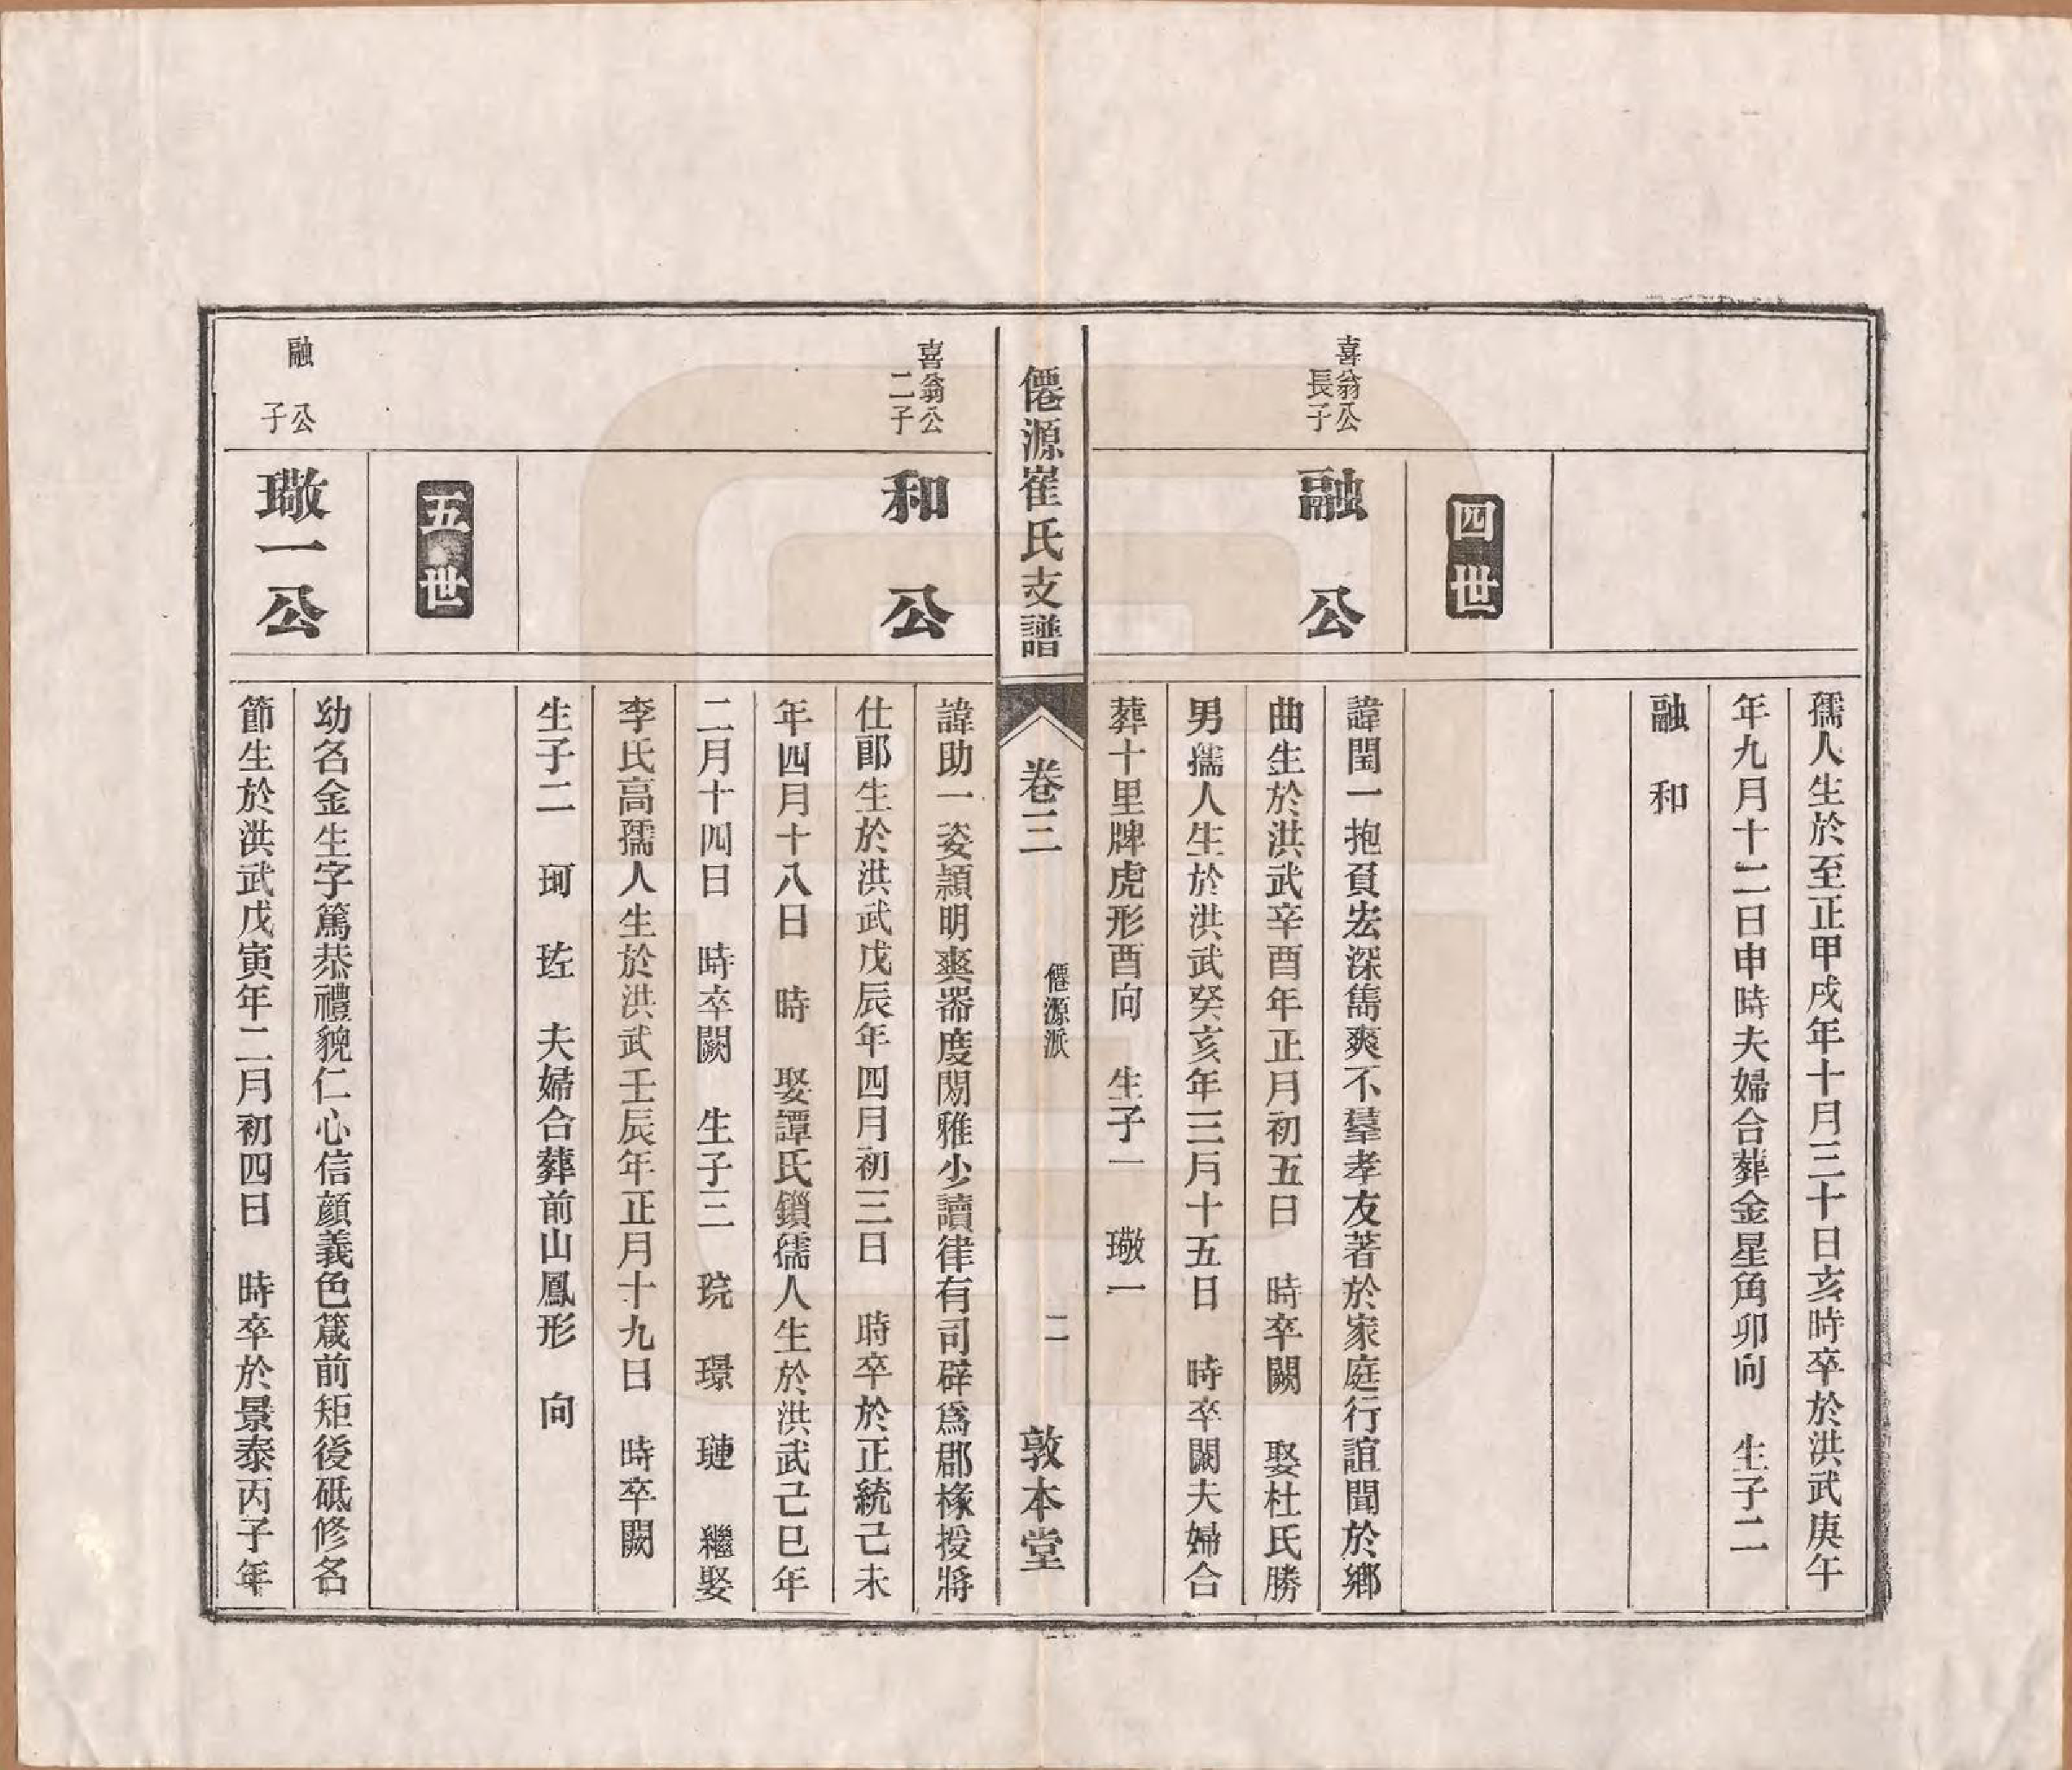 孺人生於至正甲戌年十月三十日亥時卒於洪武庚午
年九月十二日申時夫婦合葬金星角卯向　生子二
融　和
四世
喜翁公
長子
融　公
諱閏一抱負宏深雋爽不羣孝友著於家庭行誼聞於鄉
曲生於洪武辛酉年正月初五日　時卒闕　娶杜氏勝
男孺人生於洪武癸亥年三月十五日　時卒闕夫婦合
葬十里牌虎形酉向　生子一　璥一
僊源崔氏支譜
卷三
僊源派
二
敦本堂
喜翁公
二子
和　公
諱助一姿穎明爽器度閒雅少讀律有司辟爲郡椽授將
仕郎生於洪武戊辰年四月初三日　時卒於正統己未
年四月十八日　時　娶譚氏鎖孺人生於洪武己巳年
二月十四日　時卒闕　生子三　琓　璟　璉　繼娶
李氏高孺人生於洪武壬辰年正月十九日　時卒闕
生子二　珂　㻇　夫婦合葬前山鳳形　向
五世
融　公
子
璥一公
幼名金生字篤恭禮貌仁心信顏義色箴前矩後砥修名
節生於洪武戊寅年二月初四日　時卒於景泰丙子年